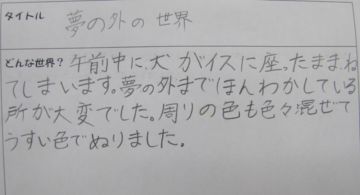 タイトル 夢の外の世界
どんな世界? 午前中に、犬がイスに座ったままね
てしまいます。夢の外までほんわかしている
所が大変でした。周りの色も色々混ぜて
うすい色でぬりました。